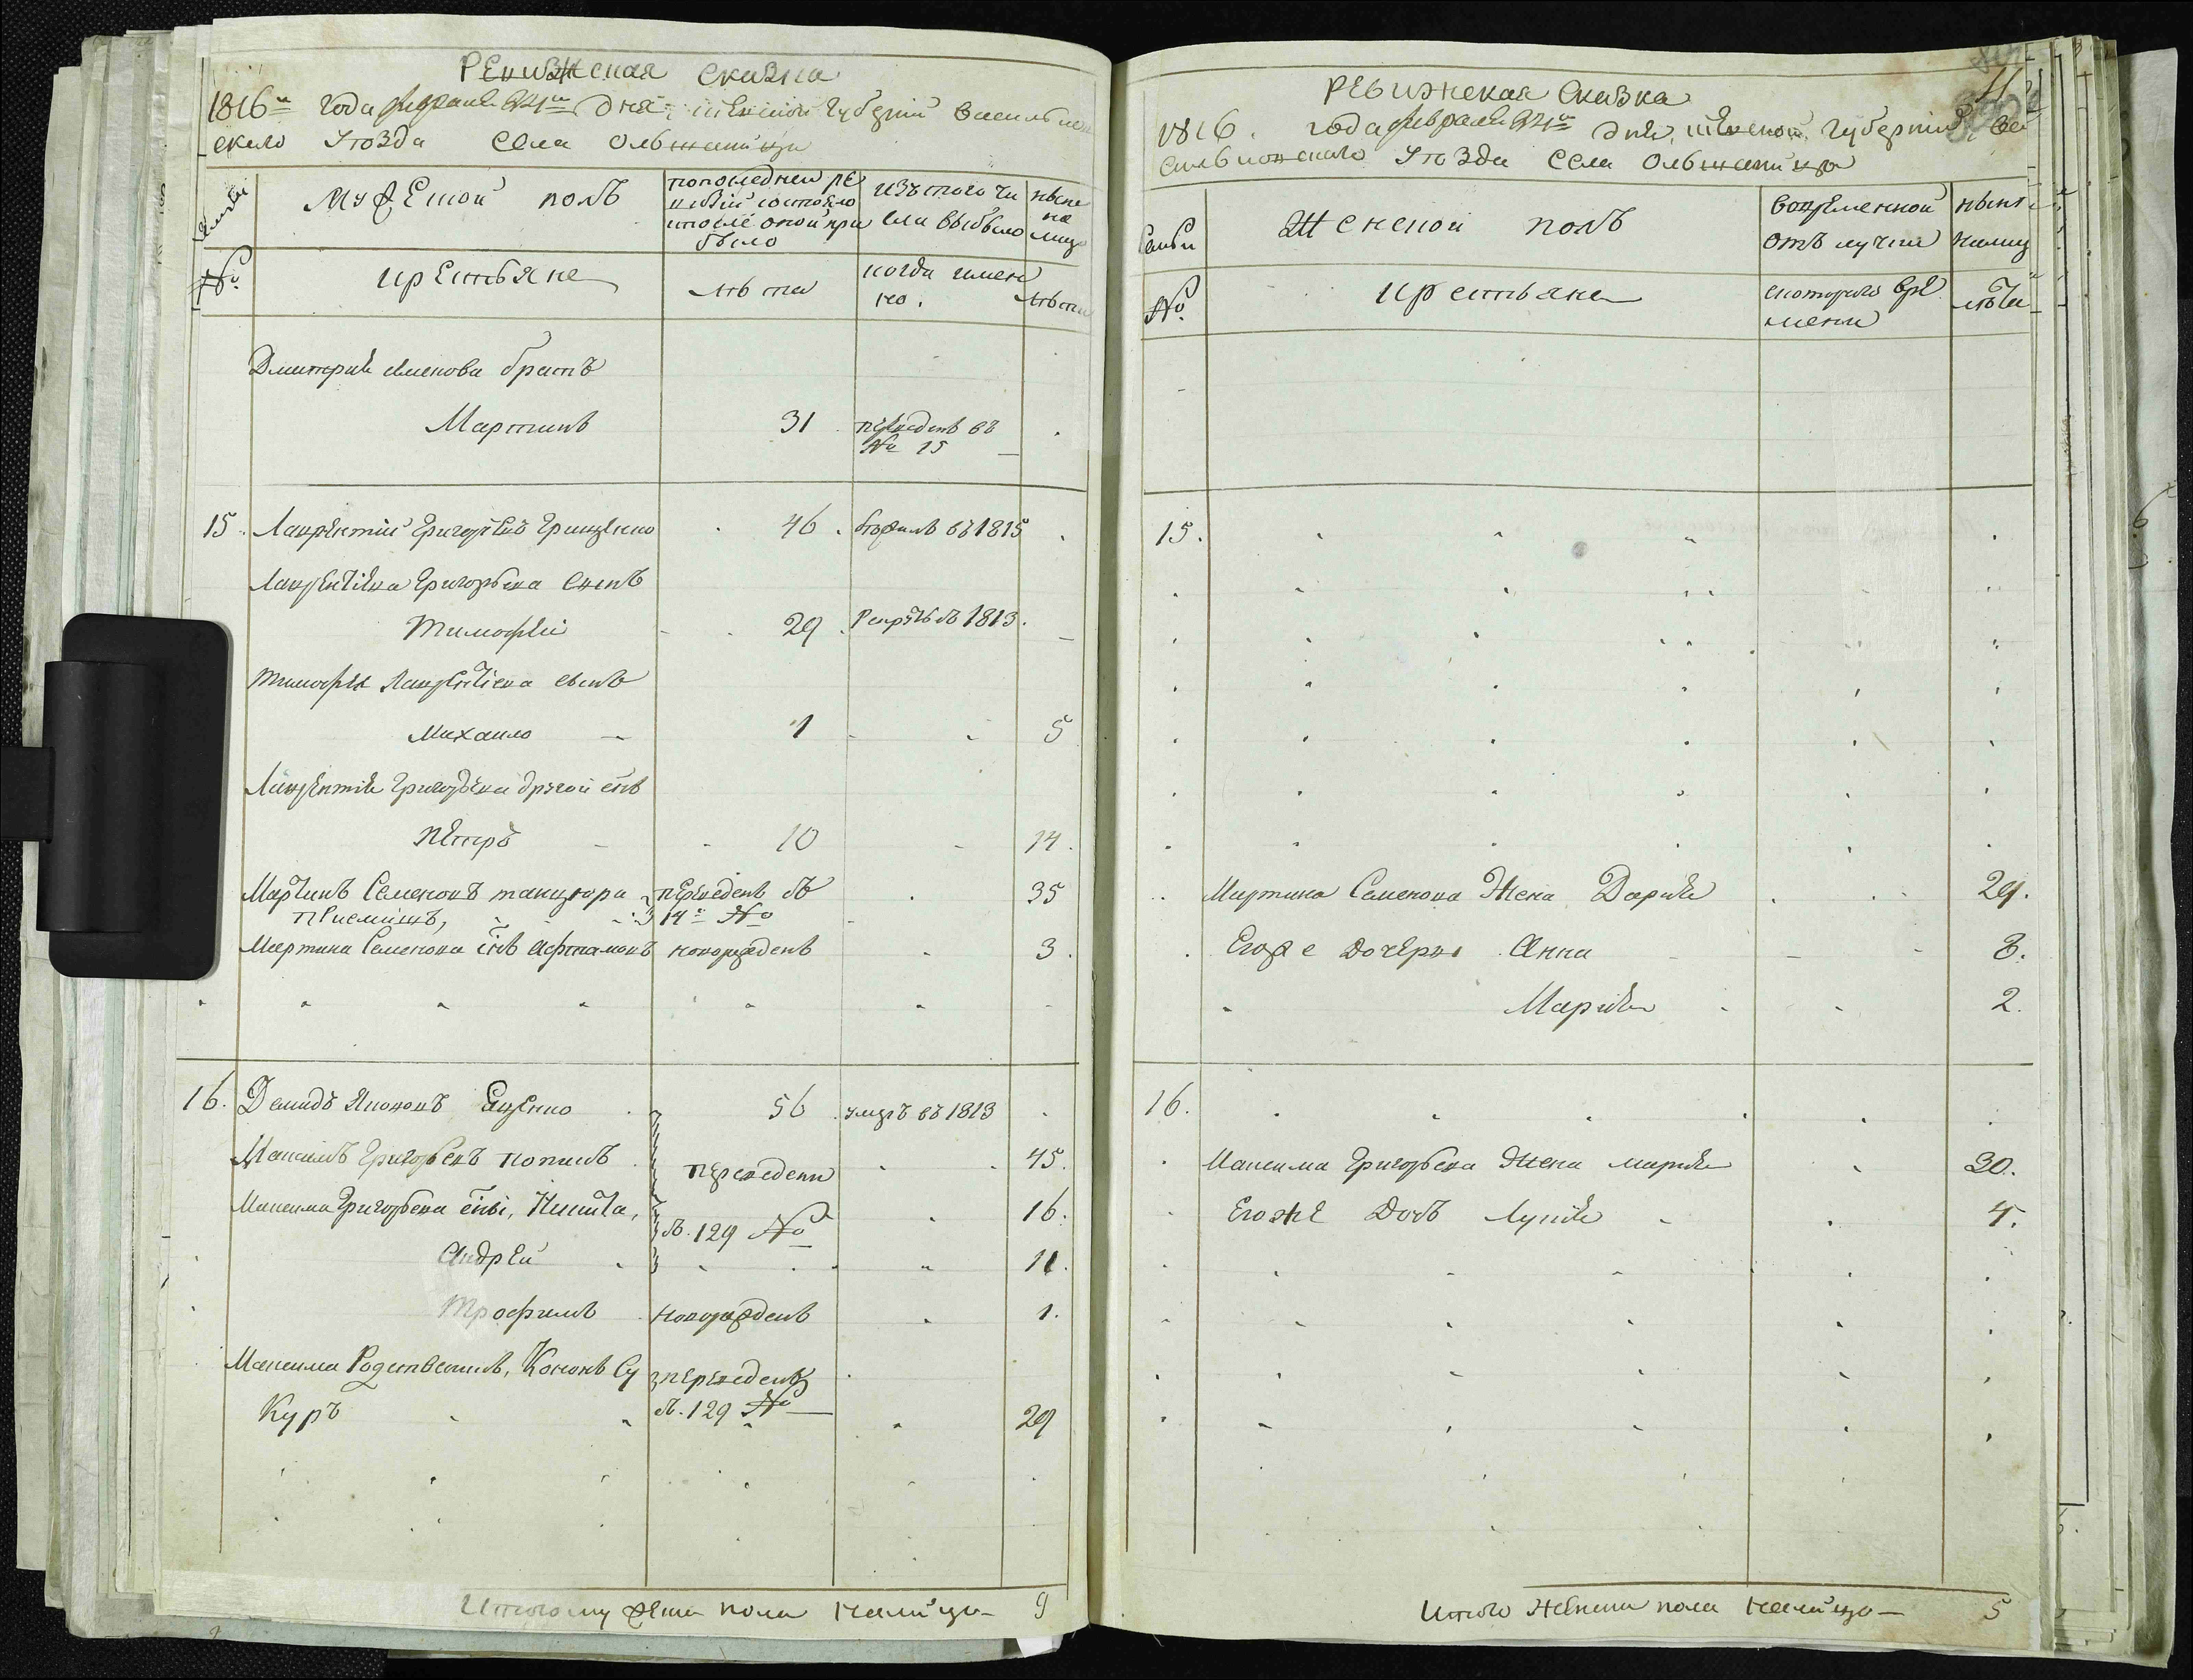 РЕвизкская сказка
1816го года февраля 24го дня, киевской губернии Васильков
скаго Уезда Села Ольшаницы
Семьи
Мужеской полъ
попоследней ре
визии состояло
ипосле оной при
было
изъ того чи
сла выбыло
ныне
на
лицо
№
крестьяне
лѣта
когда имен
но.
лѣта
Дмитрия Семенова братъ
Мартинъ 31 переведенъ въ
№ 15
15. Лаврентий Григорьевъ Гриценко 46. въ 1815
Лаврентіева Григорьева Сынъ
Тимофей 29. Рекрутъ въ 1813.
Тимофея Лаврентіева сынъ
Михайло 1 5
Лаврентія Григорьева другой снъ
Петръ 10 14.
Мартинъ Семеновъ переведенъ съ 35
приемышъ, 14го №
Мартина Семенова снъ Афтамонъ новорожденъ 3.
16. Демидъ Якововъ 56 умеръ въ 1813
Максимъ Григорьевъ переведени 45.
Максима Григорьева снъі, Никита, съ 129 № 16.
Андрей 11.
Трофимъ новорожденъ 1.
Максима Родственникъ, Кононъ Су переведенъ
Куръ съ. 129 № 29
Итого мужеска пола налицо 9
11.
РЕвижская Сказка
1816. года февраля 24го дня, киевской Губернии, Ва
сильковскаго Уезда Села Ольшаницы
Семьи
Женской полъ
вовременной
отълучки
ныне
налицо
№
крестьяне
скотораго вре
мени
лѣта
15.
Мартина Семенова Жена Дарья 29.
Егоже дочери Анна 8.
Марія 2.
16.
Максима Григорьева Жена марія 30.
Егоже Дочь Лукія 4.
Итого Женска пола Налицо 5